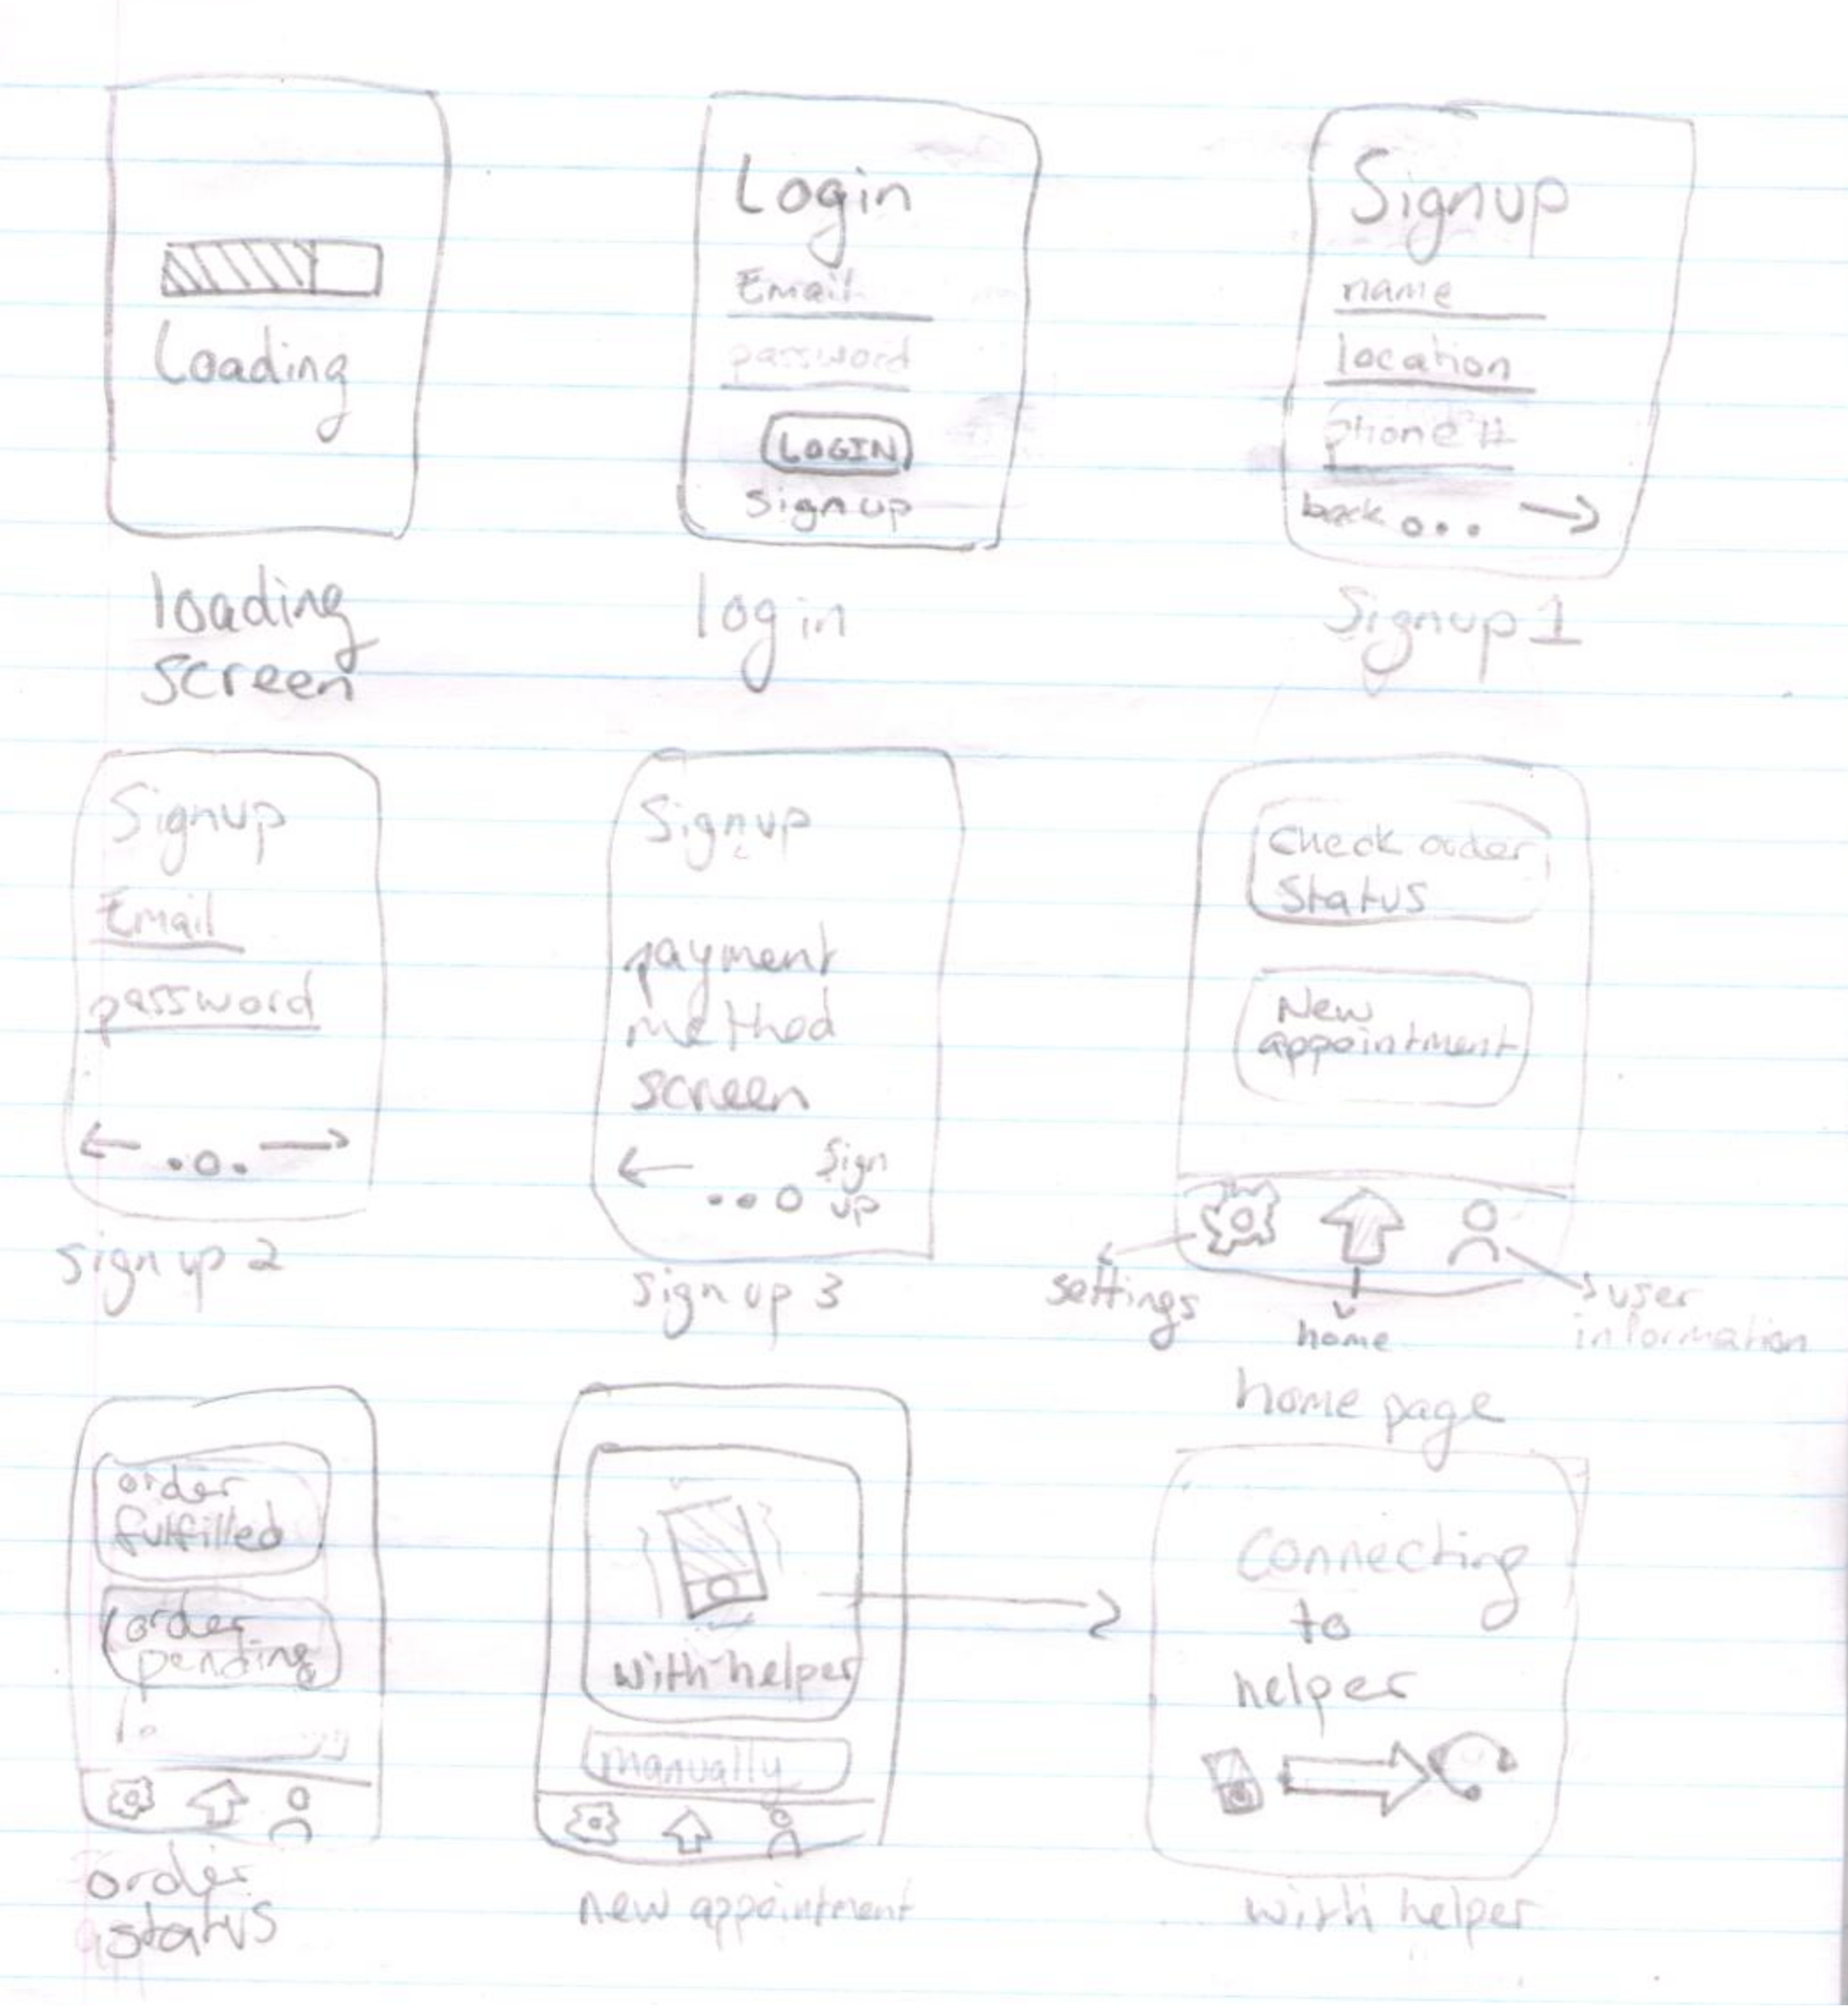 Loading
loading
screen
Login
Email
password
LOGIN
Sign up
login
Signup
name
location
phone #
back
Signup 1
Signup
Email
password
sign up 2
Signup
payment
method
screen
Sign
up
sign up 3
Check order
Status
New
appointment
settings
home
user
information
home page
order
fulfilled
order
pending
order
status
with helper
manually
new appointment
Connecting
to
helper
with helper